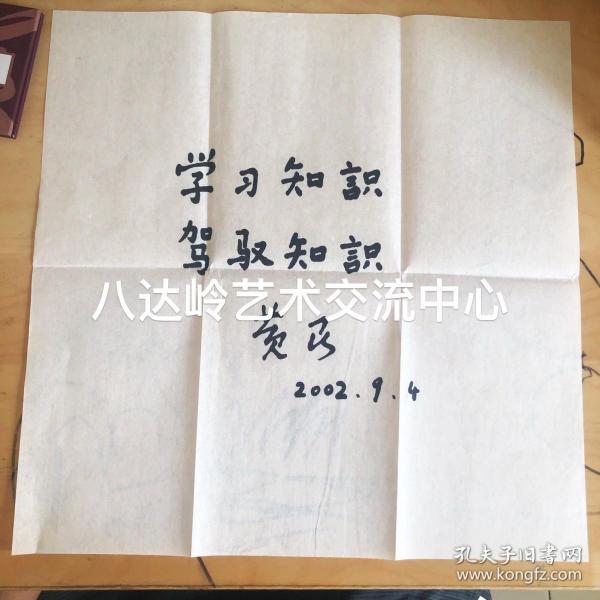 学习知識
驾驭知識
八达岭艺术交流中心
2002.9.4
孔夫子旧書网
www.kongfz.com